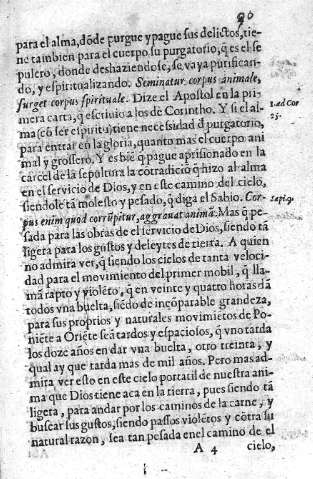 90
para el alma, dõde purgue y pague sus delictos, tie-
ne tambien para el cuerpo su purgatorio, q̃ es el se
pulcro, donde deshaziendose, se va ya purifican-
do, y espiritualizando. Seminatur corpus animale,
surget corpus spirituale. Dize el Apostol en la pri
mera carta, q̃ escriuio a los de Corintho. Y si el al-
ma (cõ ser espiritu) tiene necesidad d̃ purgatorio,
para entrar en la gloria, quanto mas el cuerpo ani
mal y grosero. Y es biẽ q̃ pague aprisionado en la
carcel de la sepoltura la cõtradiciõ q̃ hizo al alma
en el seruicio de Dios, y en este camino del cielo,
siendole tã molesto y pesado, q̃ diga el Sabio. Cor-
pus enim quod corrũpitur, aggrauat animã. Mas q̃ pe-
sada para las obras de el seruicio de Dios, siendo tã
ligera para los gustos y deleytes de tierra. A quien
no admira ver, q̃ siendo los cielos de tanta veloci-
dad para el mouimiento del primer mobil, q̃ lla-
mã rapto y violẽto, q̃ en veinte y quatro horas dã
todos vna buelta, siẽdo de incõparable grandeza,
para sus proprios y naturales mouimiẽtos de Po-
niẽte a Oriẽte seã tardos y espaciosos, q̃ vno tarda
los doze años en dar vna buelta, otro treinta, y
qual ay que tarda mas de mil años. Pero mas ad-
mira ver esto en este cielo portatil de nuestra ani-
ma que Dios tiene aca en la tierra, pues siendo tã
ligera, para andar por los caminos de la carne, y
buscar sus gustos, siendo passos violẽtos y cõtra su
natural razon, sea tan pesada en el camino de el
A 4 cielo,
1. ad Cor
15.
Sap.